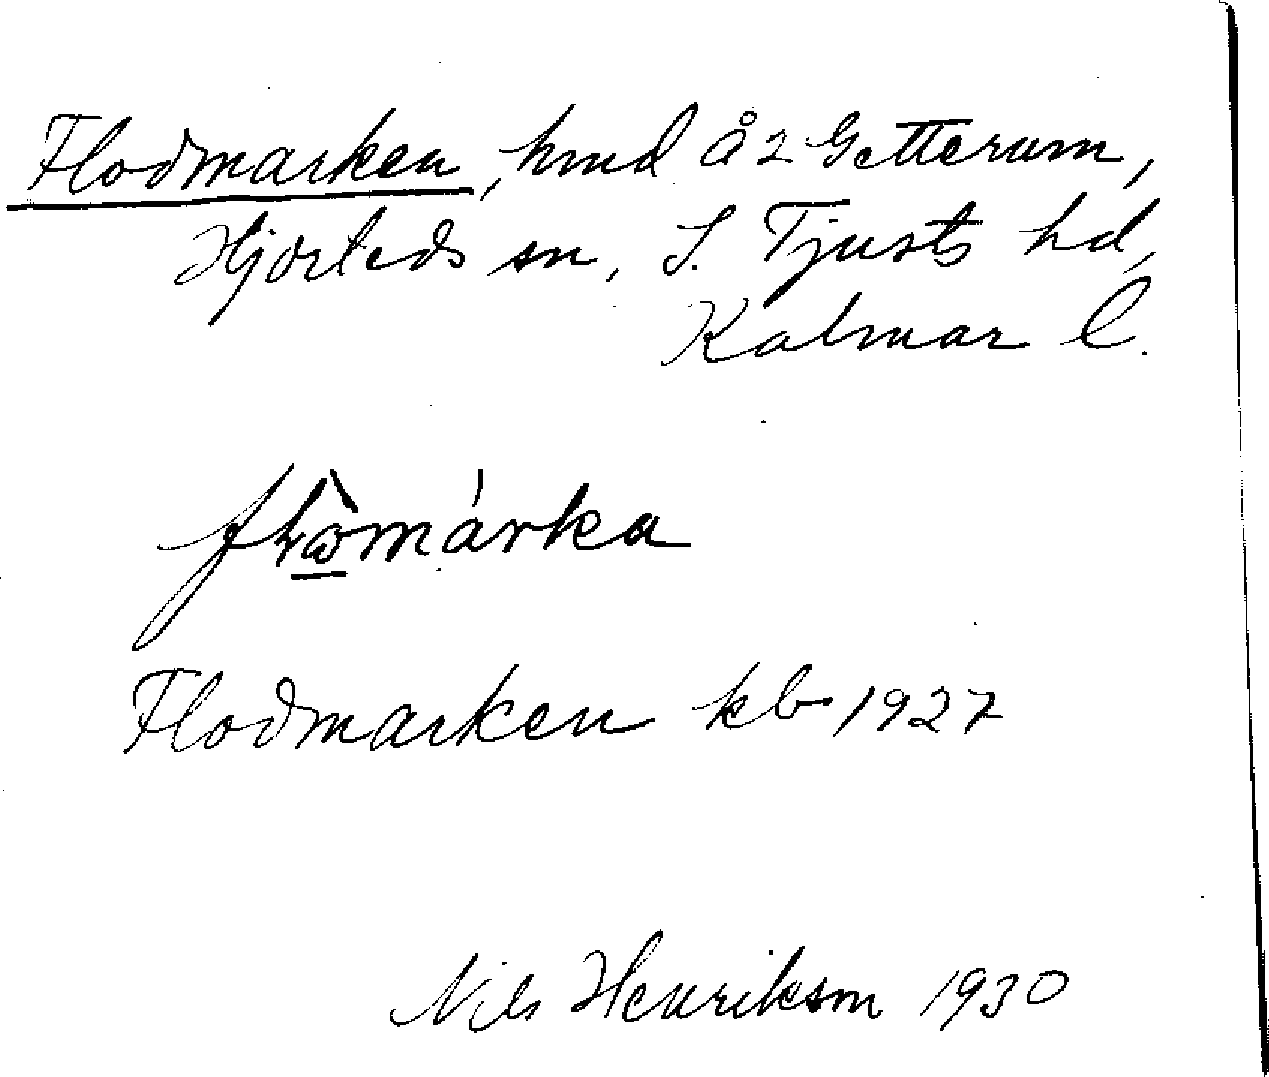 Flodmarken, hmd å 2 Getterum,
Hjorteds sn, S. Tjusts hd,
Kalmar l.
Flodmarken kb 1927
Nils Henriksm 1930